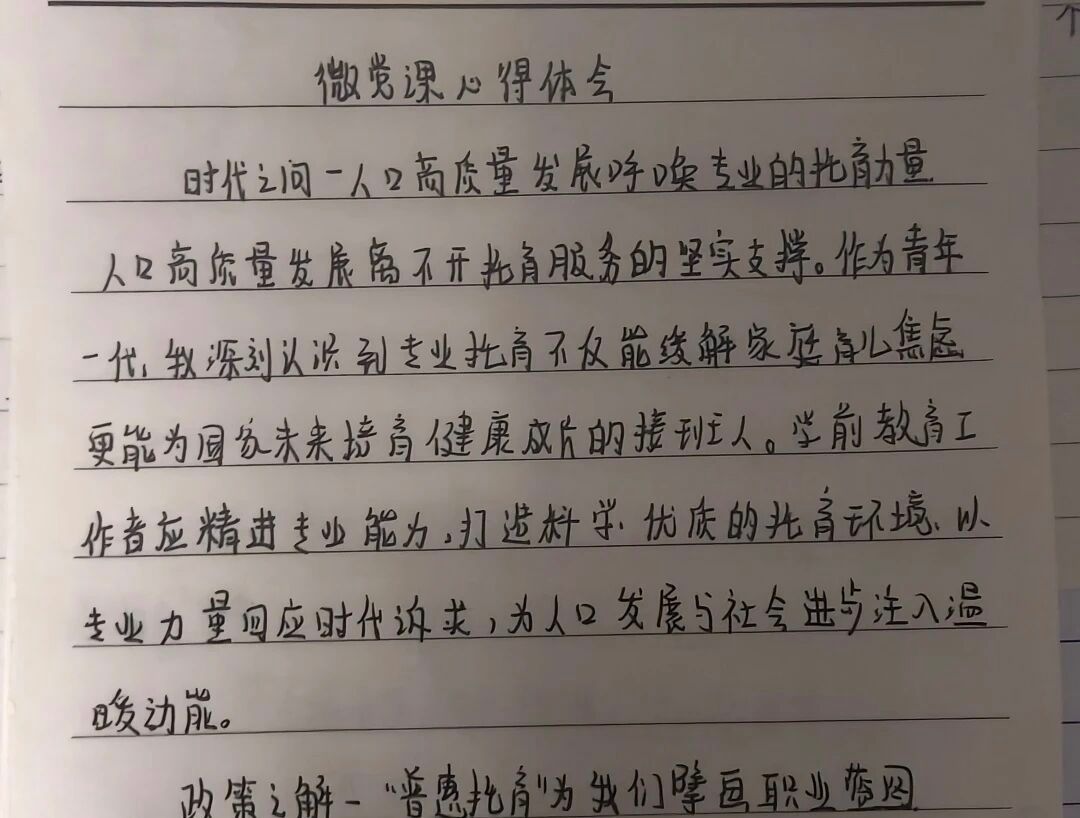 微党课心得体会
时代之问一人口高质量发展呼唤专业的托育力量
人口高质量发展离不开托育服务的坚实支撑。作为青年
一代,我深刻认识到专业托育不仅能缓解家庭育儿焦虑
更能为国家未来培育健康成片的接班人。学前教育工
作者应精进专业能力,打造科学、优质的托育环境、以
专业力量回应时代诉求,为人口发展与社会进步注入温
暖动能。
政策之解一“普惠托育”为我们擘画职业蓝图
个